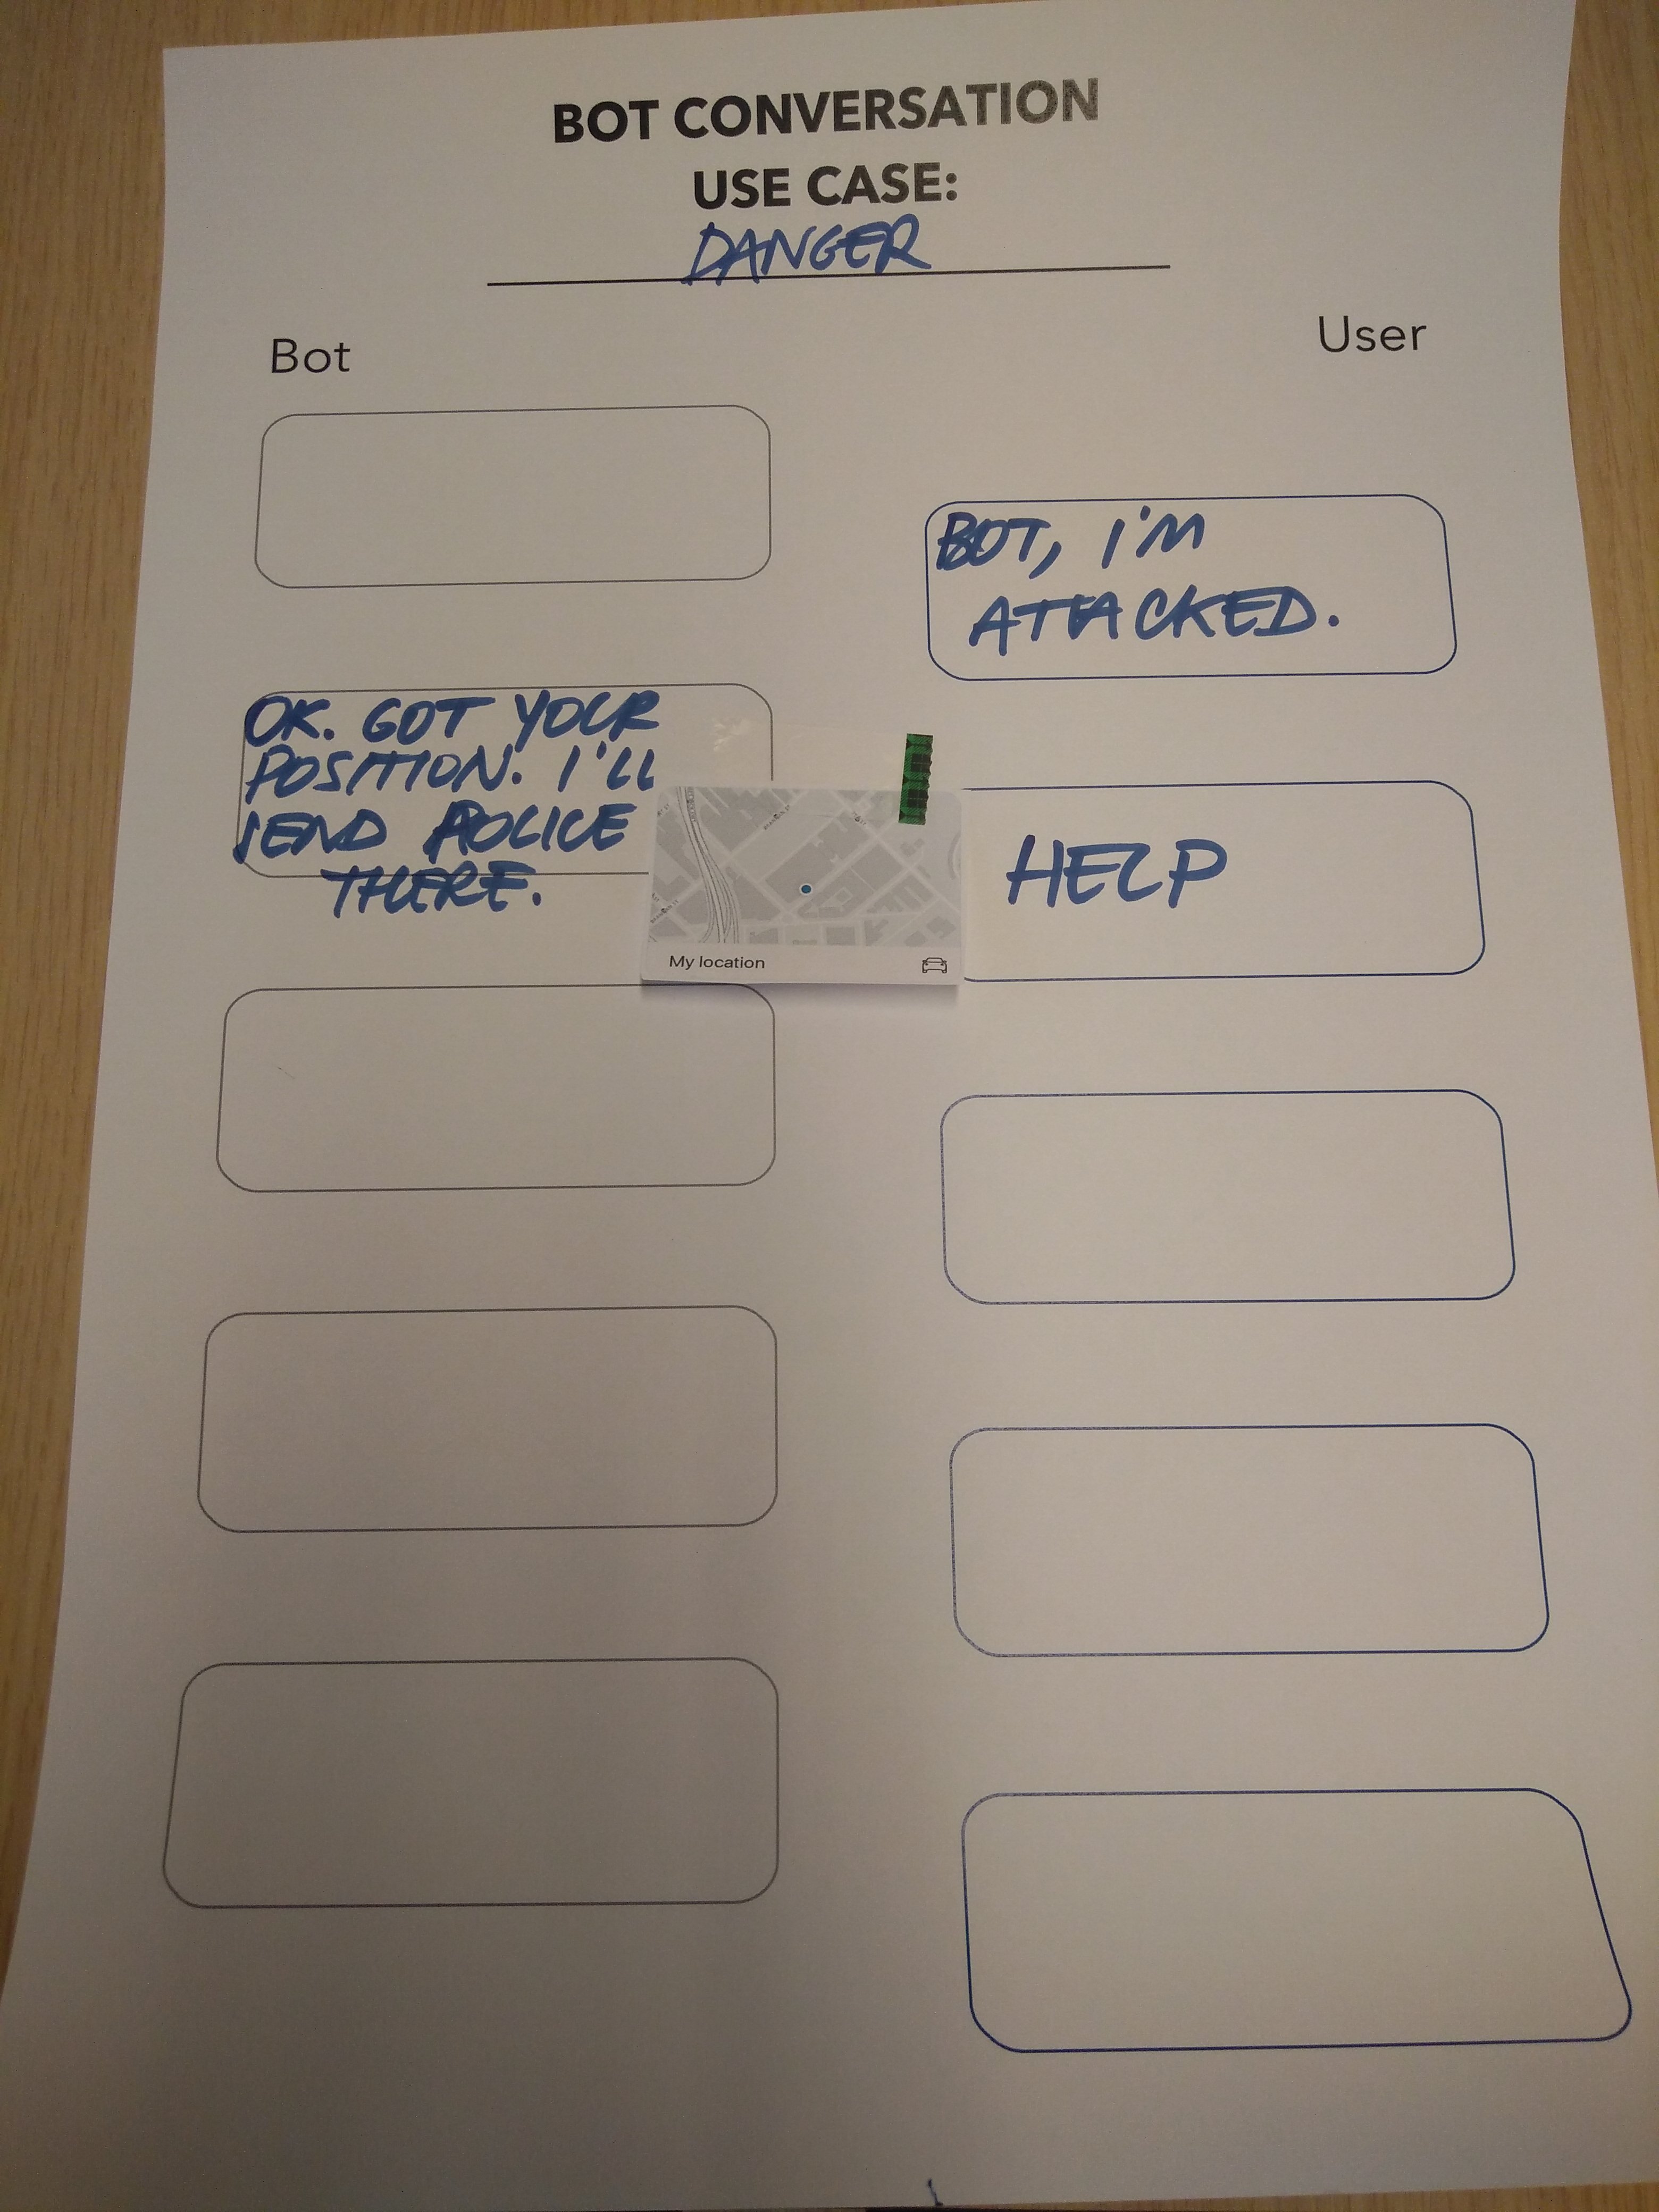 BOT CONVERSATION
USE CASE:
DANGER
Bot
User
BOT, I'M
ATTACKED.
OK. GOT YOUR
POSITION. I'LL
SEND POLICE
THERE.
My location
HELP